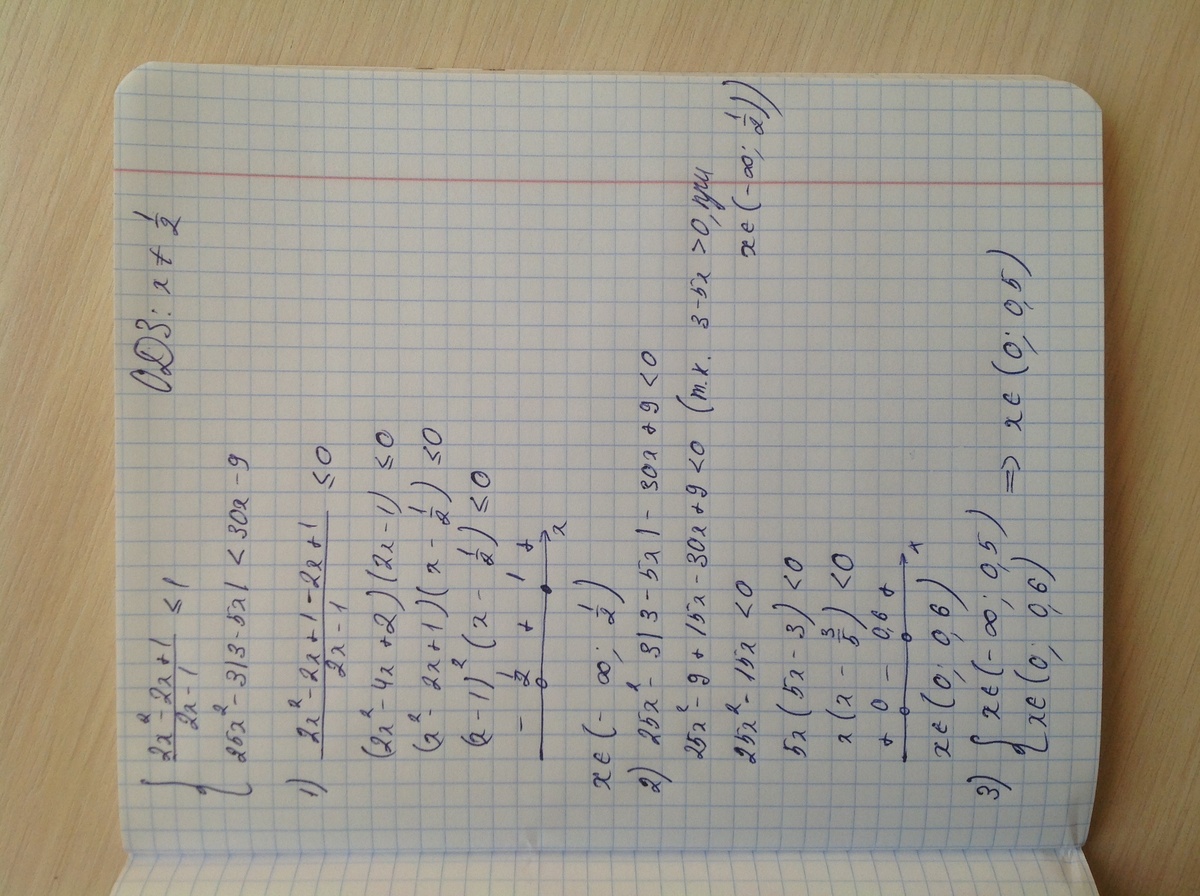 ОДЗ: x ≠ 1/2
{ (2x² - 2x + 1)/(2x - 1) ≤ 1
25x² - 3|3 - 5x| < 30x - 9
1) (2x² - 2x + 1 - 2x + 1)/(2x - 1) ≤ 0
(2x² - 4x + 2)(2x - 1) ≤ 0
(x² - 2x + 1)(x - 1/2) ≤ 0
(x - 1)² (x - 1/2) ≤ 0
- 1/2 + 1 +
x
x ∈ (- ∞; 1/2)
2) 25x² - 3|3 - 5x| - 30x + 9 < 0
25x² - 9 + 15x - 30x + 9 < 0 (т.к. 3 - 5x > 0, при
x ∈ (- ∞; 1/2))
25x² - 15x < 0
5x (5x - 3) < 0
x (x - 3/5) < 0
+ 0 - 0,6 +
x
x ∈ (0; 0,6)
3) { x ∈ (- ∞; 0,5)
x ∈ (0; 0,6) => x ∈ (0; 0,5)